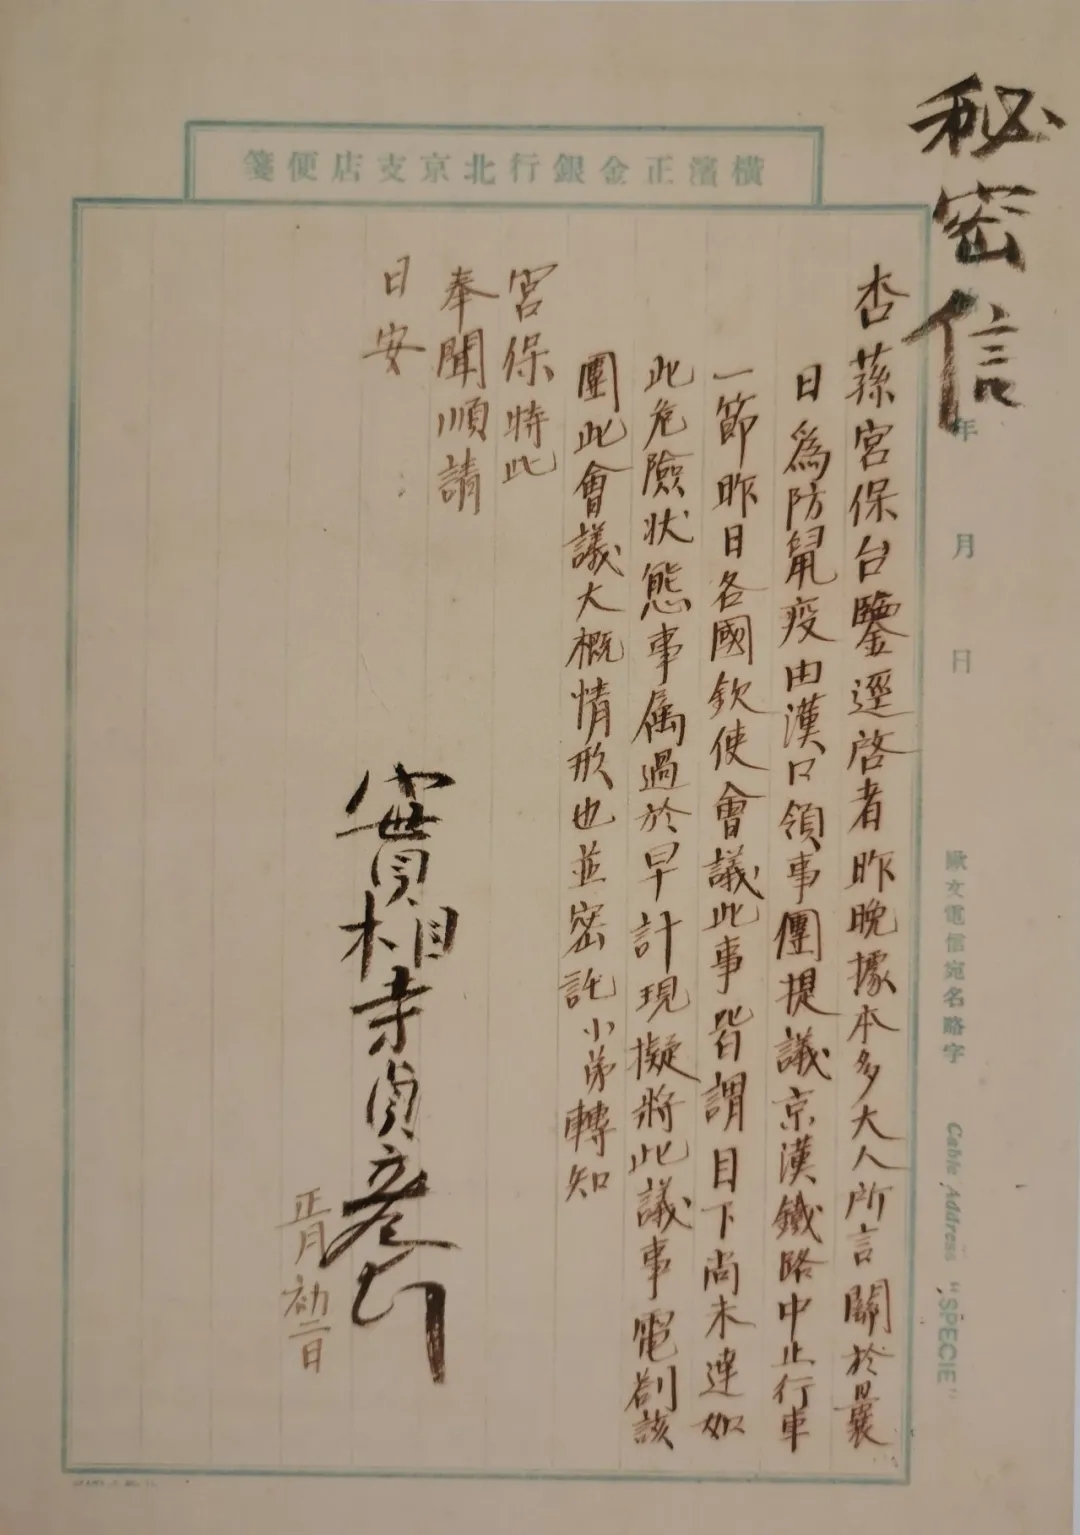 秘密信
橫濱正金銀行北京支店便箋
年 月 日
歐文電信宛名略字 Cable Address "SPECIE"
杏蓀宮保台鑒逕啓者昨晚據本多大人所言關於曩
日爲防鼠疫由漢口領事團提議京漢鐵路中止行車
一節昨日各國欽使會議此事皆謂目下尚未達如
此危險狀態事属過於早計現擬將此議事電劄該
團此會議大概情形也並密託小弟轉知
宮保特此
奉聞順請
日安
實相寺貞彥
正月初二日